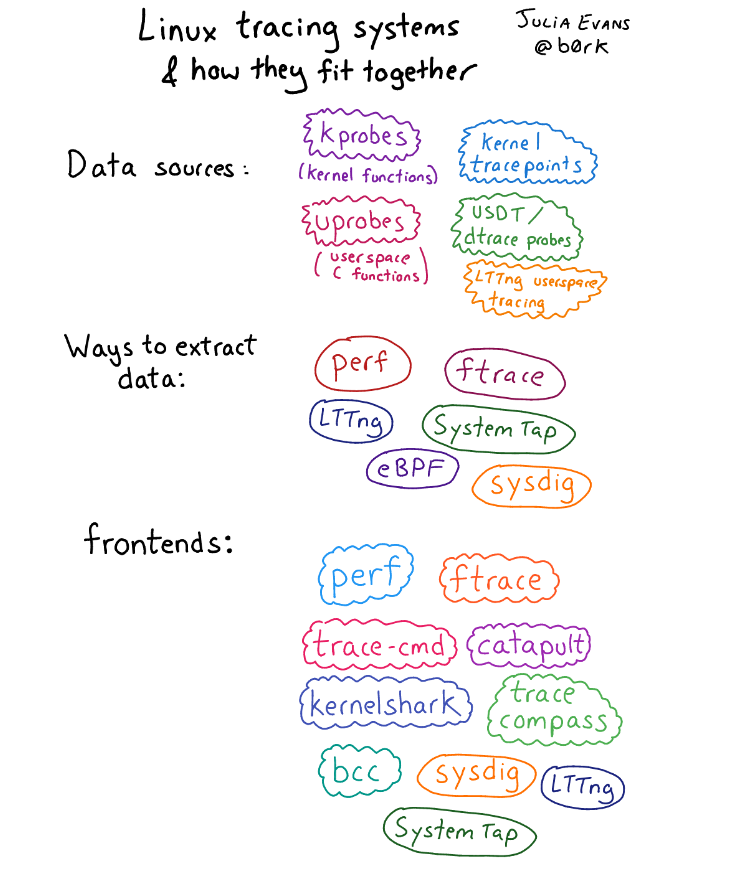 Linux tracing systems
& how they fit together
JULIA EVANS
@b0rk
Data sources:
kprobes
(kernel functions)
kernel
tracepoints
uprobes
(userspace
C functions)
USDT /
dtrace probes
LTTng userspace
tracing
Ways to extract
data:
perf
ftrace
LTTng
SystemTap
eBPF
sysdig
frontends:
perf
ftrace
trace-cmd
catapult
kernelshark
trace
compass
bcc
sysdig
LTTng
SystemTap